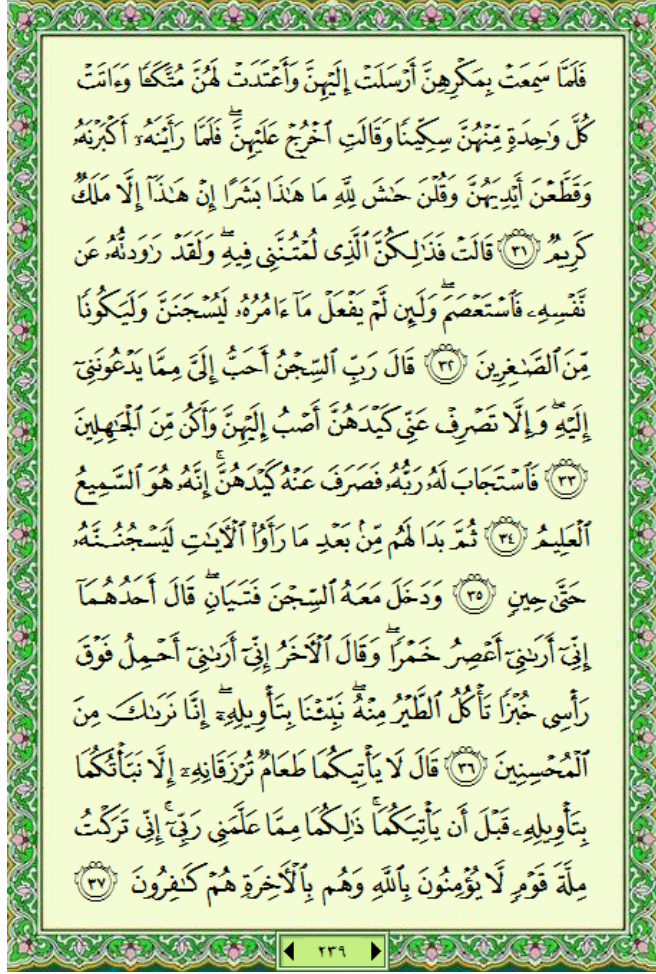 فَلَمَّا سَمِعَتْ بِمَكْرِهِنَّ أَرْسَلَتْ إِلَيْهِنَّ وَأَعْتَدَتْ لَهُنَّ مُتَّكَـًٔا وَءَاتَتْ
كُلَّ وَٰحِدَةٍ مِّنْهُنَّ سِكِّينًا وَقَالَتِ ٱخْرُجْ عَلَيْهِنَّ ۖ فَلَمَّا رَأَيْنَهُۥٓ أَكْبَرْنَهُۥ
وَقَطَّعْنَ أَيْدِيَهُنَّ وَقُلْنَ حَٰشَ لِلَّهِ مَا هَٰذَا بَشَرًا إِنْ هَٰذَآ إِلَّا مَلَكٌ
كَرِيمٌ ٣١ قَالَتْ فَذَٰلِكُنَّ ٱلَّذِى لُمْتُنَّنِى فِيهِ ۖ وَلَقَدْ رَٰوَدتُّهُۥ عَن
نَّفْسِهِۦ فَٱسْتَعْصَمَ ۖ وَلَئِن لَّمْ يَفْعَلْ مَآ ءَامُرُهُۥ لَيُسْجَنَنَّ وَلَيَكُونًا
مِّنَ ٱلصَّٰغِرِينَ ٣٢ قَالَ رَبِّ ٱلسِّجْنُ أَحَبُّ إِلَىَّ مِمَّا يَدْعُونَنِىٓ
إِلَيْهِ ۖ وَإِلَّا تَصْرِفْ عَنِّى كَيْدَهُنَّ أَصْبُ إِلَيْهِنَّ وَأَكُن مِّنَ ٱلْجَٰهِلِينَ
٣٣ فَٱسْتَجَابَ لَهُۥ رَبُّهُۥ فَصَرَفَ عَنْهُ كَيْدَهُنَّ ۚ إِنَّهُۥ هُوَ ٱلسَّمِيعُ
ٱلْعَلِيمُ ٣٤ ثُمَّ بَدَا لَهُم مِّنۢ بَعْدِ مَا رَأَوُا۟ ٱلْـَٔايَٰتِ لَيَسْجُنُنَّهُۥ
حَتَّىٰ حِينٍ ٣٥ وَدَخَلَ مَعَهُ ٱلسِّجْنَ فَتَيَانِ ۖ قَالَ أَحَدُهُمَآ
إِنِّىٓ أَرَىٰنِىٓ أَعْصِرُ خَمْرًا ۖ وَقَالَ ٱلْـَٔاخَرُ إِنِّىٓ أَرَىٰنِىٓ أَحْمِلُ فَوْقَ
رَأْسِى خُبْزًا تَأْكُلُ ٱلطَّيْرُ مِنْهُ ۖ نَبِّئْنَا بِتَأْوِيلِهِۦٓ ۖ إِنَّا نَرَىٰكَ مِنَ
ٱلْمُحْسِنِينَ ٣٦ قَالَ لَا يَأْتِيكُمَا طَعَامٌ تُرْزَقَانِهِۦٓ إِلَّا نَبَّأْتُكُمَا
بِتَأْوِيلِهِۦ قَبْلَ أَن يَأْتِيَكُمَا ۚ ذَٰلِكُمَا مِمَّا عَلَّمَنِى رَبِّىٓ ۚ إِنِّى تَرَكْتُ
مِلَّةَ قَوْمٍ لَّا يُؤْمِنُونَ بِٱللَّهِ وَهُم بِٱلْـَٔاخِرَةِ هُمْ كَٰفِرُونَ ٣٧
٢٣٩